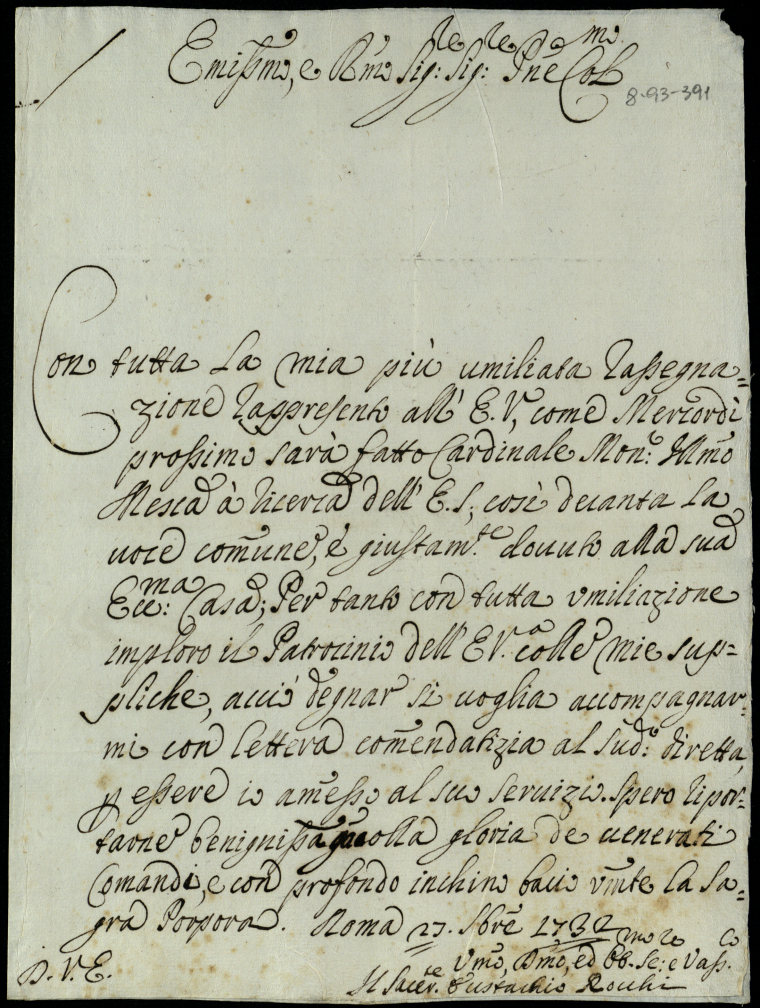 Emissmo, e Rmo Sig:re Sig:re Pne Colmo
8-93-391
Con tutta la mia più umiliata rassegna=
zione rappresento all' E.V, come Mercordì
prossimo sarà fatto Cardinale Mon:r Illmo
à ricerca dell' E.S, così decanta la
voce comune, è giustam:te dovuto alla sua
Ecc:ma Casa; Per tanto con tutta umiliazione
imploro il Patrocinio dell' E.V. colle mie sup=
pliche, acciò degnar si voglia accompagnar=
mi con lettera comendatizia al sud:o diretta,
p essere io amesso al suo servizio. Spero ripor=
tarne benignissa colla gloria de venerati
Comandi, e con profondo inchino bacio umte la Sa=
gra Porpora. Roma 27. 1732
D.V.E.
Umo, Dmo, ed Obb.mo Se:re e Vass.
Il Sacer.te Eustachio Rocchi